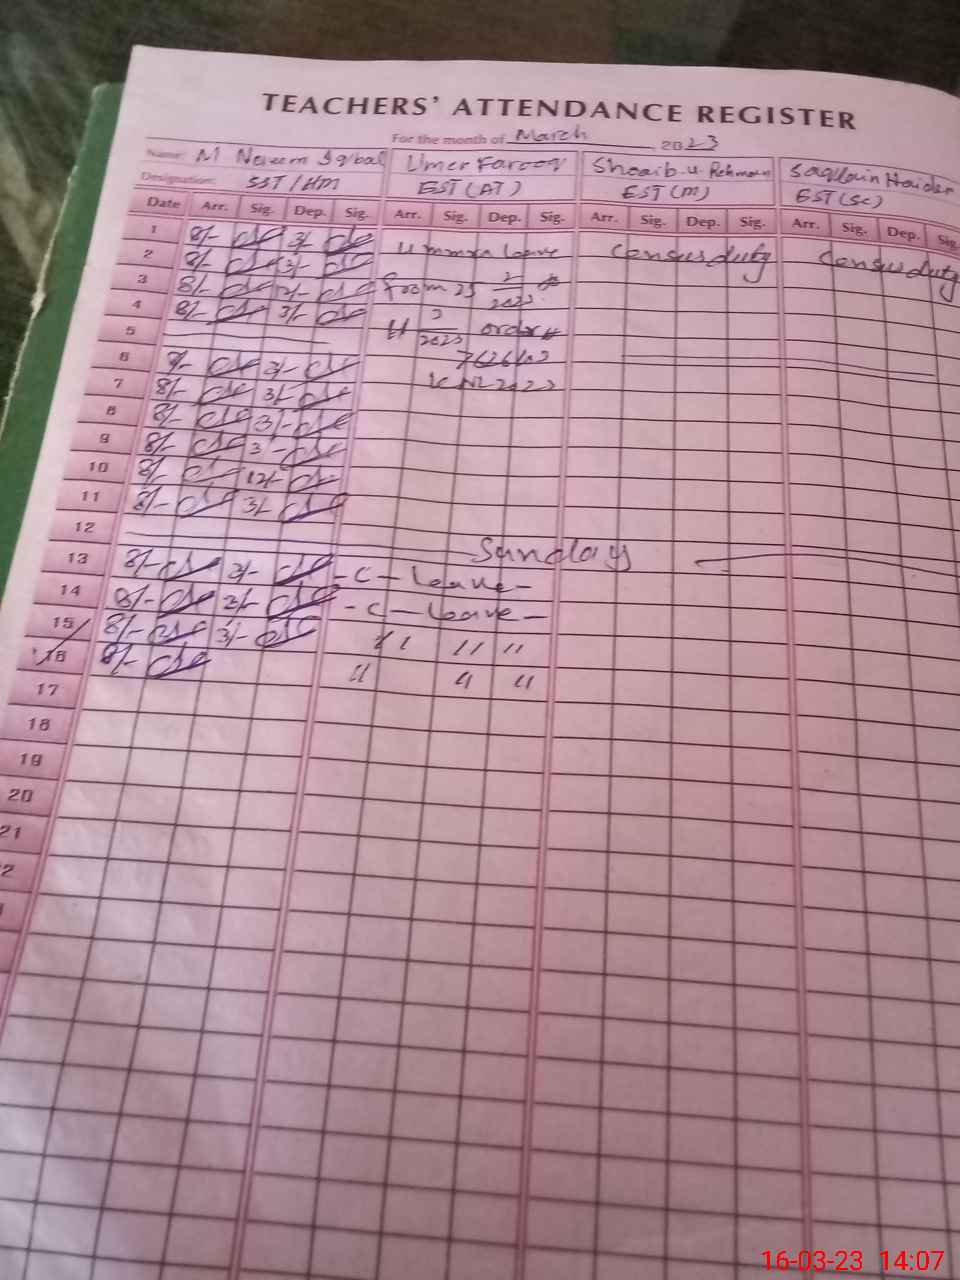 TEACHERS' ATTENDANCE REGISTER
For the month of March, 2023
Name: M Naeem Iqbal Umer Farooq Shoaib-u-Rehman Saqlain Haider
Designation: SST/HM EST(AT) EST(M) EST(SC)
Date Arr. Sig. Dep. Sig. Arr. Sig. Dep. Sig. Arr. Sig. Dep. Sig. Arr. Sig. Dep. Sig.
1 8/- 3/-
2 8/- 3/- leave Census duty Census duty
3 8/- 12/- From 25 2/2023 to
4 8/- 3/- 3/2023 order #
5
6 8/- 3/-
7 8/- 3/-
8 8/- 3/-
9 8/- 3/-
10 8/- 12/-
11 8/- 3/-
12 Sunday
13 8/- 3/- -C-leave-
14 8/- 3/- -C-leave-
15 8/- 3/- " " "
16 8/- " " "
17
18
19
20
21
2
16-03-23 14:07